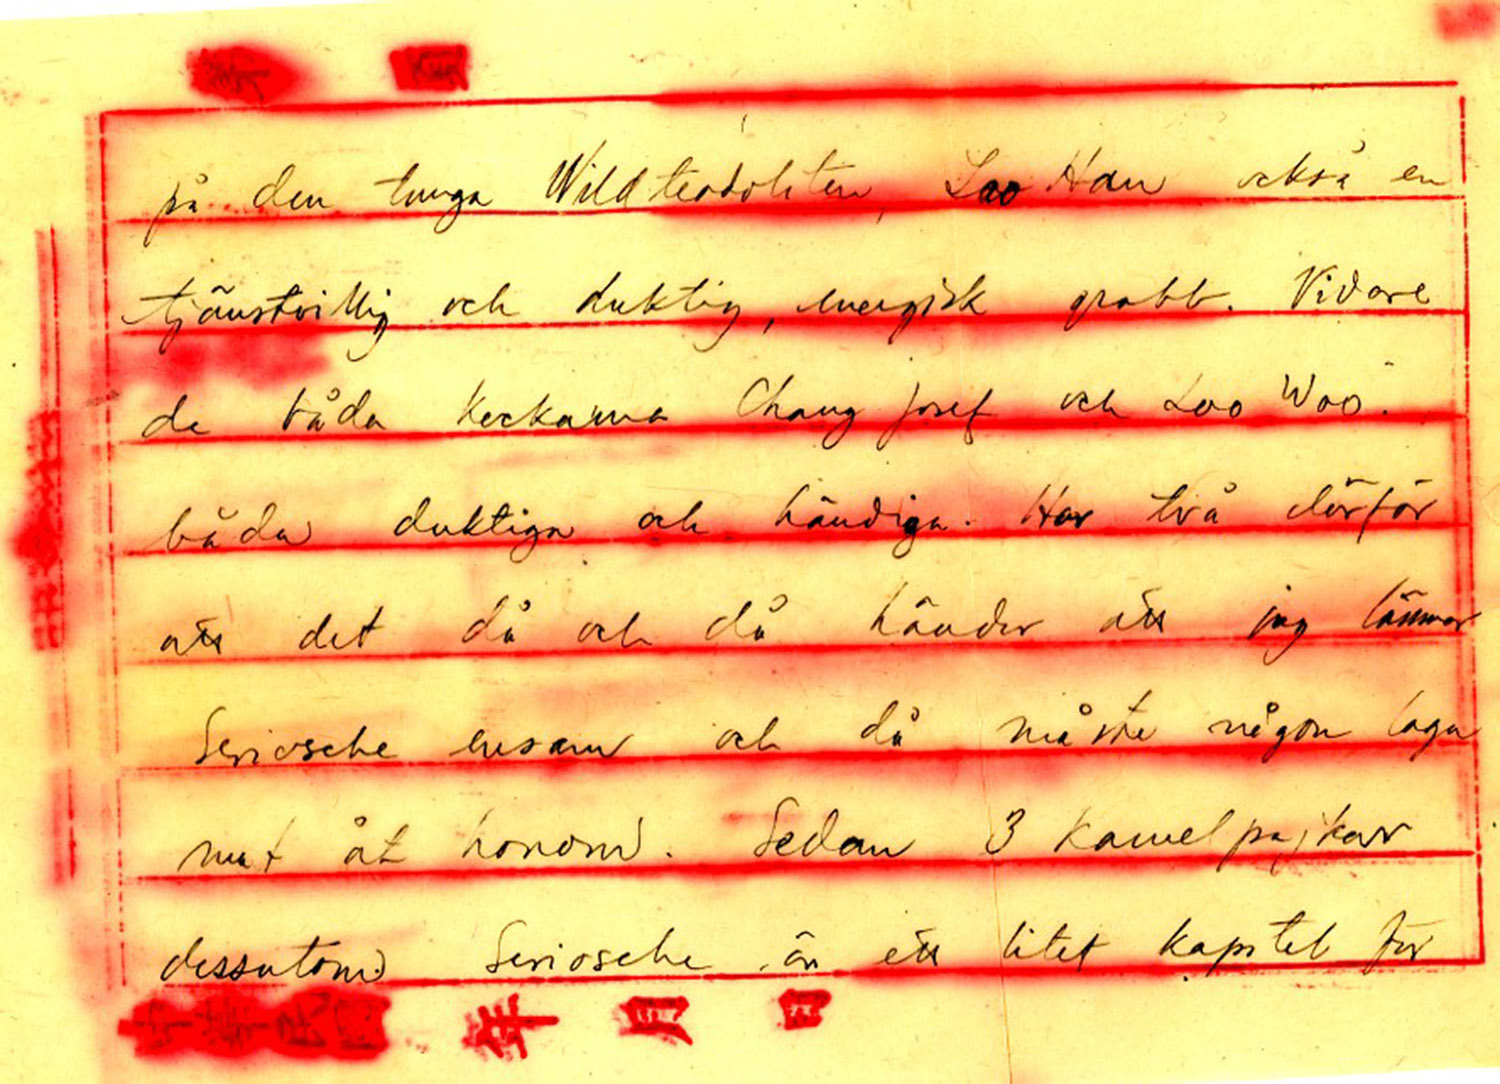 på den tunga Wild teodoliten, Lao Han också en
tjänstvillig och duktig, energisk grabb. Vidare
de båda kockarna Chang Josef och Loo Woo.
båda duktiga och händiga. Har två därför
att det då och då händer att jag lämnar
Seriosche ensam och då måste någon laga
mat åt honom. Sedan 3 kamelpojkar
dessutom Seriosche är ett litet kapitel för
年 月 日